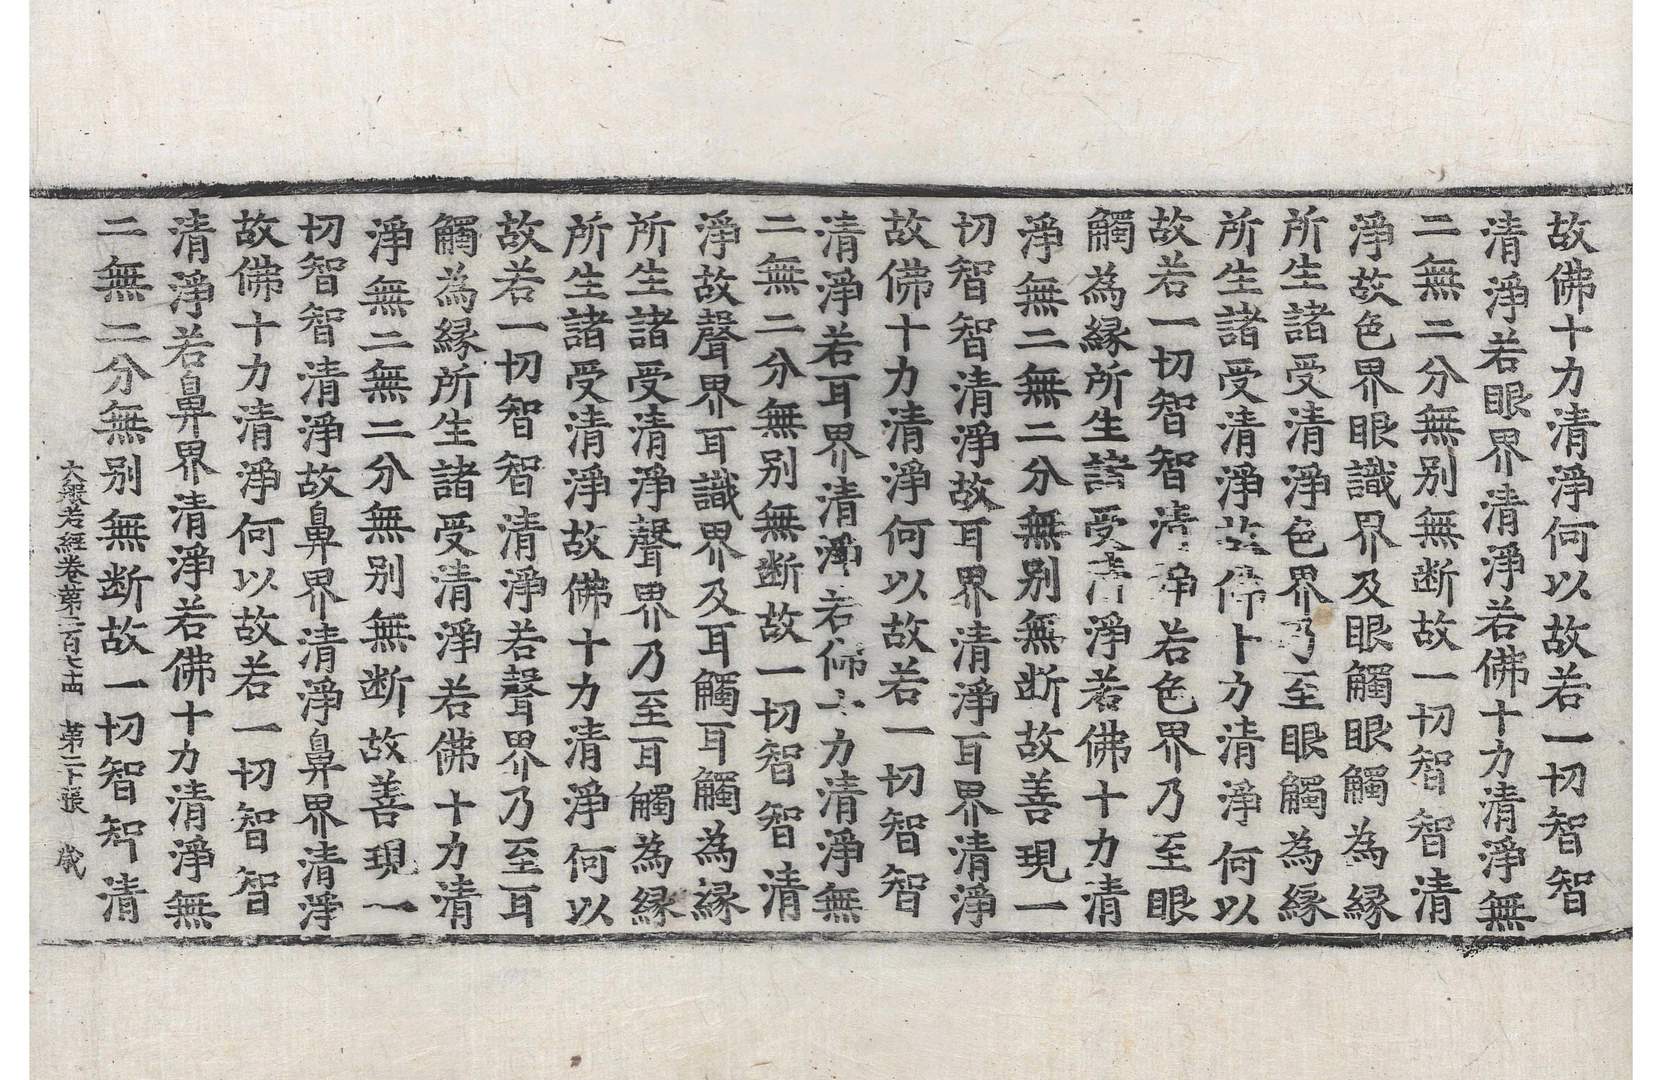 故佛十力清淨何以故若一切智智
清淨若眼界清淨若佛十力清淨無
二無二分無別無断故一切智智清
淨故色界眼識界及眼觸眼觸為縁
所生諸受清淨色界乃至眼觸為縁
所生諸受清淨故佛十力清淨何以
故若一切智智清淨若色界乃至眼
觸為縁所生諸受清淨若佛十力清
淨無二無二分無別無断故善現一
切智智清淨故耳界清淨耳界清淨
故佛十力清淨何以故若一切智智
清淨若耳界清淨若佛十力清淨無
二無二分無別無断故一切智智清
淨故聲界耳識界及耳觸耳觸為縁
所生諸受清淨聲界乃至耳觸為縁
所生諸受清淨故佛十力清淨何以
故若一切智智清淨若聲界乃至耳
觸為縁所生諸受清淨若佛十力清
淨無二無二分無別無断故善現一
切智智清淨故鼻界清淨鼻界清淨
故佛十力清淨何以故若一切智智
清淨若鼻界清淨若佛十力清淨無
二無二分無別無断故一切智智清
大般若經卷第二百七十四 第二十張 歲